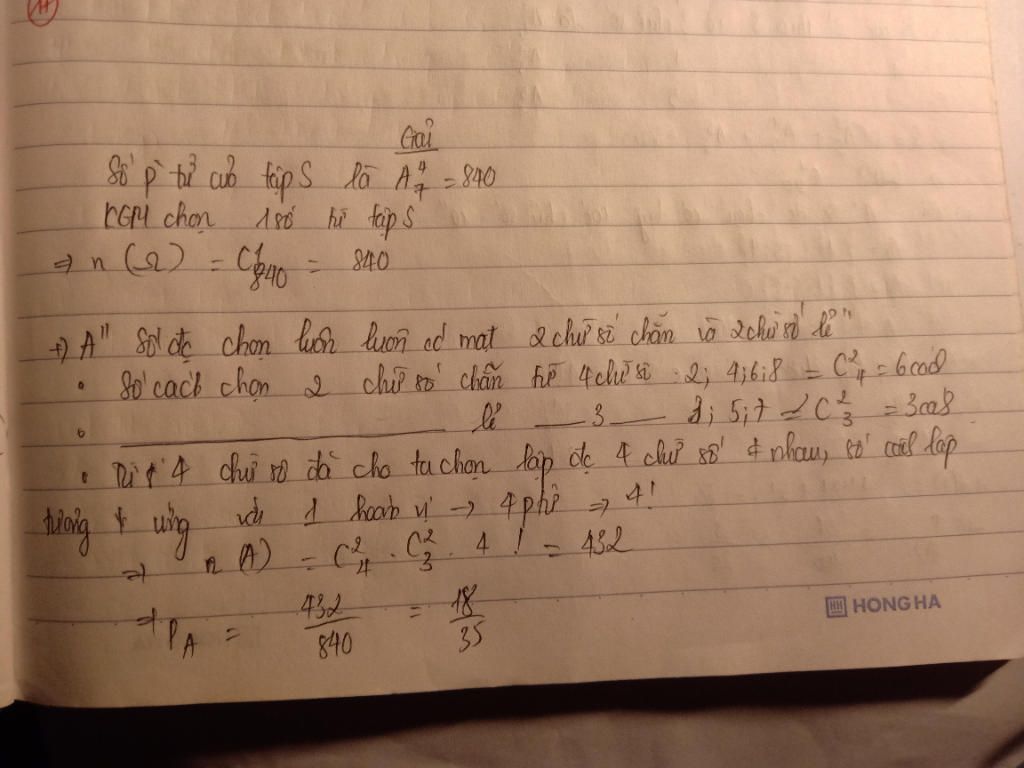 Giải
Số p tử của tập S là A⁴₇ = 840
KGM chọn 1 số từ tập S
⇒ n (Ω) = C¹₈₄₀ = 840
+) A" Số đc chọn luôn luôn có mặt 2 chữ số chẵn và 2 chữ số lẻ"
• Số cách chọn 2 chữ số chẵn từ 4 chữ số : 2; 4; 6; 8 = C²₄ = 6 cách
• ______ lẻ __ 3 __ ; 5; 7 C²₃ = 3 cách
• Từ 4 chữ số đã cho ta chọn lập đc 4 chữ số ≠ nhau, số cách lập
tương ứng với 1 hoán vị → 4 ptử ⇒ 4!
⇒ n (A) = C²₄ . C²₃ . 4 ! = 432
⇒ P_A = 432/840 = 18/35
HH HONG HA